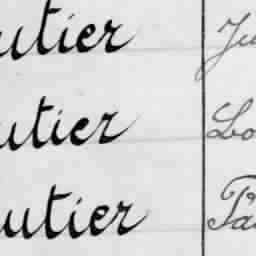 utier Ju
utier Lo
utier Pa